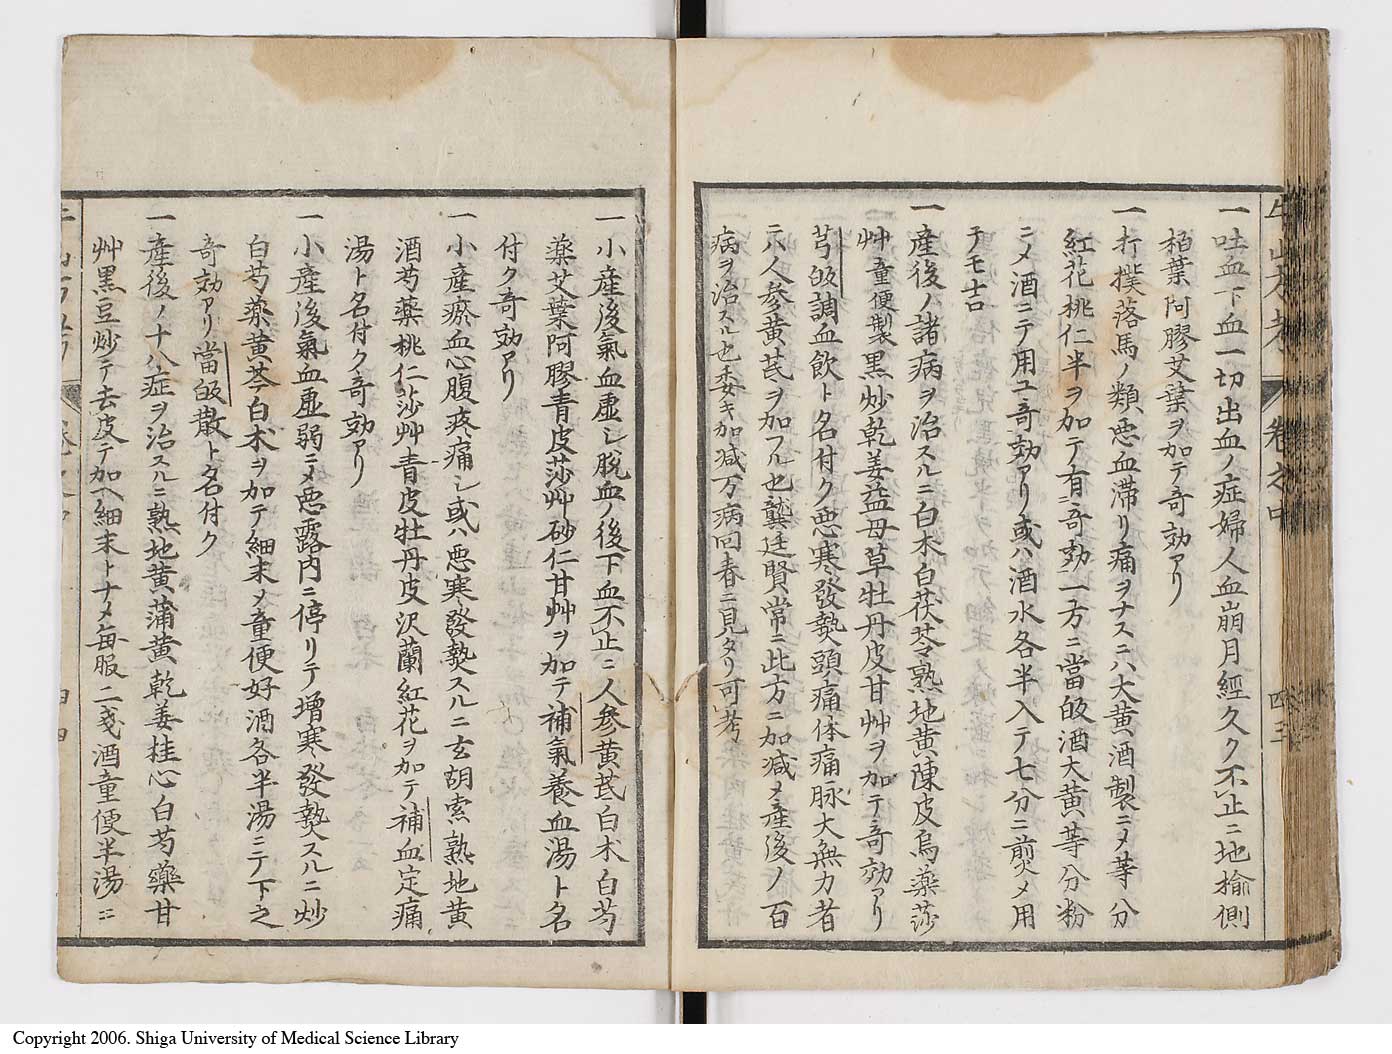 一吐血下血一切出血ノ症婦人血崩月經久ク不止ニ地榆側
栢葉阿膠艾葉ヲ加テ奇効アリ
一打撲落馬ノ類悪血滞リ痛ヲナスニハ大黄酒製ニメ等分
紅花桃仁半ヲ加テ有奇効一方ニ當皈酒大黄等分粉
ニメ酒ニテ用ユ奇効アリ或ハ酒水各半入テ七分ニ煎メ用
テモナ吉
一産後ノ諸病ヲ治スルニ白木白茯苓熟地黄陳皮烏藥莎
艸童便製黒炒乾姜益母草牡丹皮甘艸ヲ加テ奇効アリ
芎皈調血飲ト名付ク悪寒發熱頭痛体痛脉大無力者
ニハ人参黄芪ヲ加フル也龔廷賢常ニ此方ニ加减メ産後ノ百
病ヲ治スル也委キ加减万病回春ニ見タリ可考
卷之中
四三
一小産後氣血虚シ脱血ノ後下血不止ニ人参黄芪白朮白芍
藥艾葉阿膠青皮莎艸砂仁甘艸ヲ加テ補氣養血湯ト名
付ク奇効アリ
一小産瘀血心腹疼痛シ或ハ悪寒發熱スルニ玄胡索熟地黄
酒芍藥桃仁莎艸青皮牡丹皮沢蘭紅花ヲ加テ補血定痛
湯ト名付ク奇効アリ
一小産後氣血虚弱ニメ悪露内ニ停リテ増寒發熱スルニ炒
白芍藥黄芩白朮ヲ加テ細末ノ童便好酒各半湯ニテ下之
奇効アリ當皈散ト名付ク
一産後ノ十八症ヲ治スルニ熟地黄蒲黄乾姜桂心白芍藥甘
艸黒豆炒テ去皮テ加ヘ細末トナメ毎服二戔酒童便半湯ニ
四四